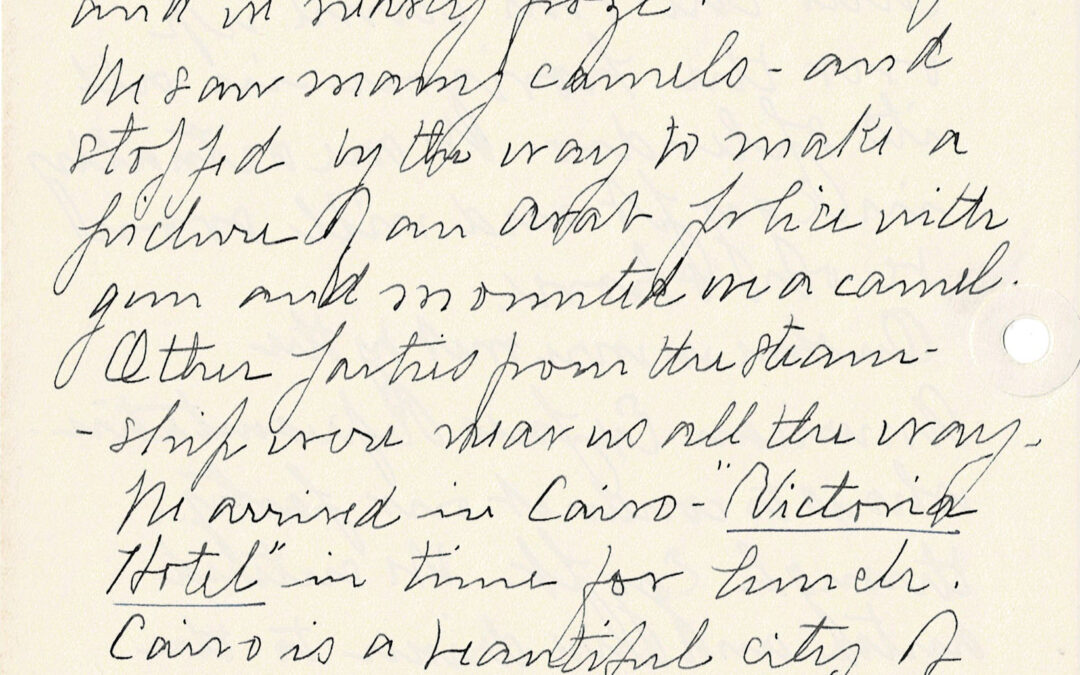 and in
We saw many camels - and
stopped by the way to make a
picture of an Arab police with
gun and mounted on a camel.
Other parties from the steam-
-ship were near us all the way.
We arrived in Cairo - "Victoria
Hotel" in time for lunch.
Cairo is a beautiful city of